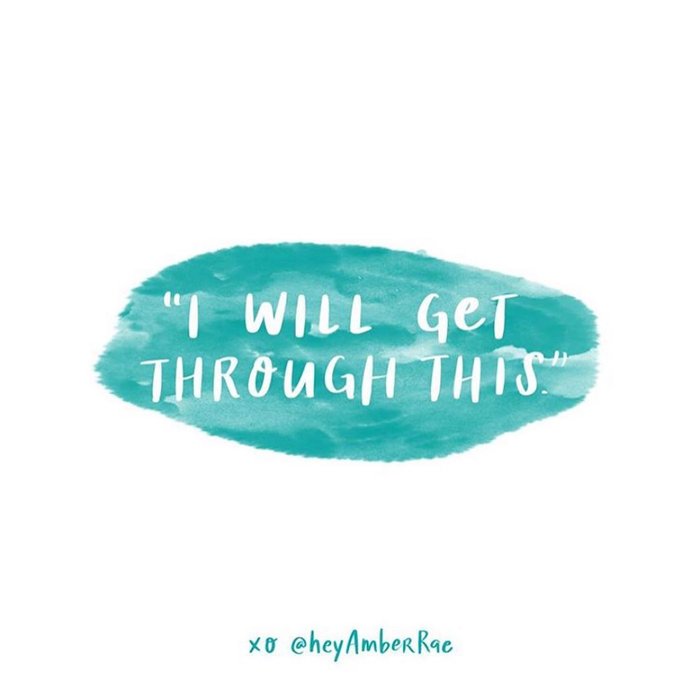 "I WILL GET
THROUGH THIS."
xo @heyAmberRae